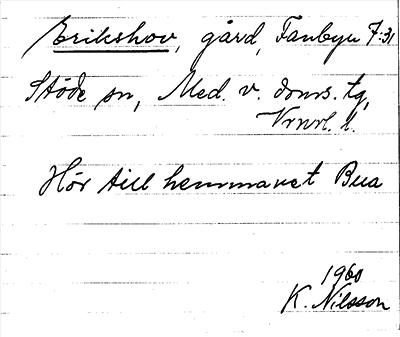 Erikshov, gård, Fanbyn 7:31
Stöde sn, Med. v. doms. tg,
Vrnrl. l.
Hör till hemmanet Bua
1960
K. Nilsson